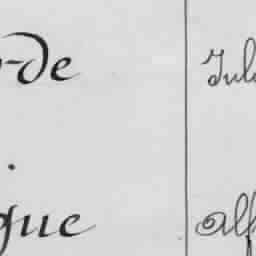 -de Jul
gue Alf